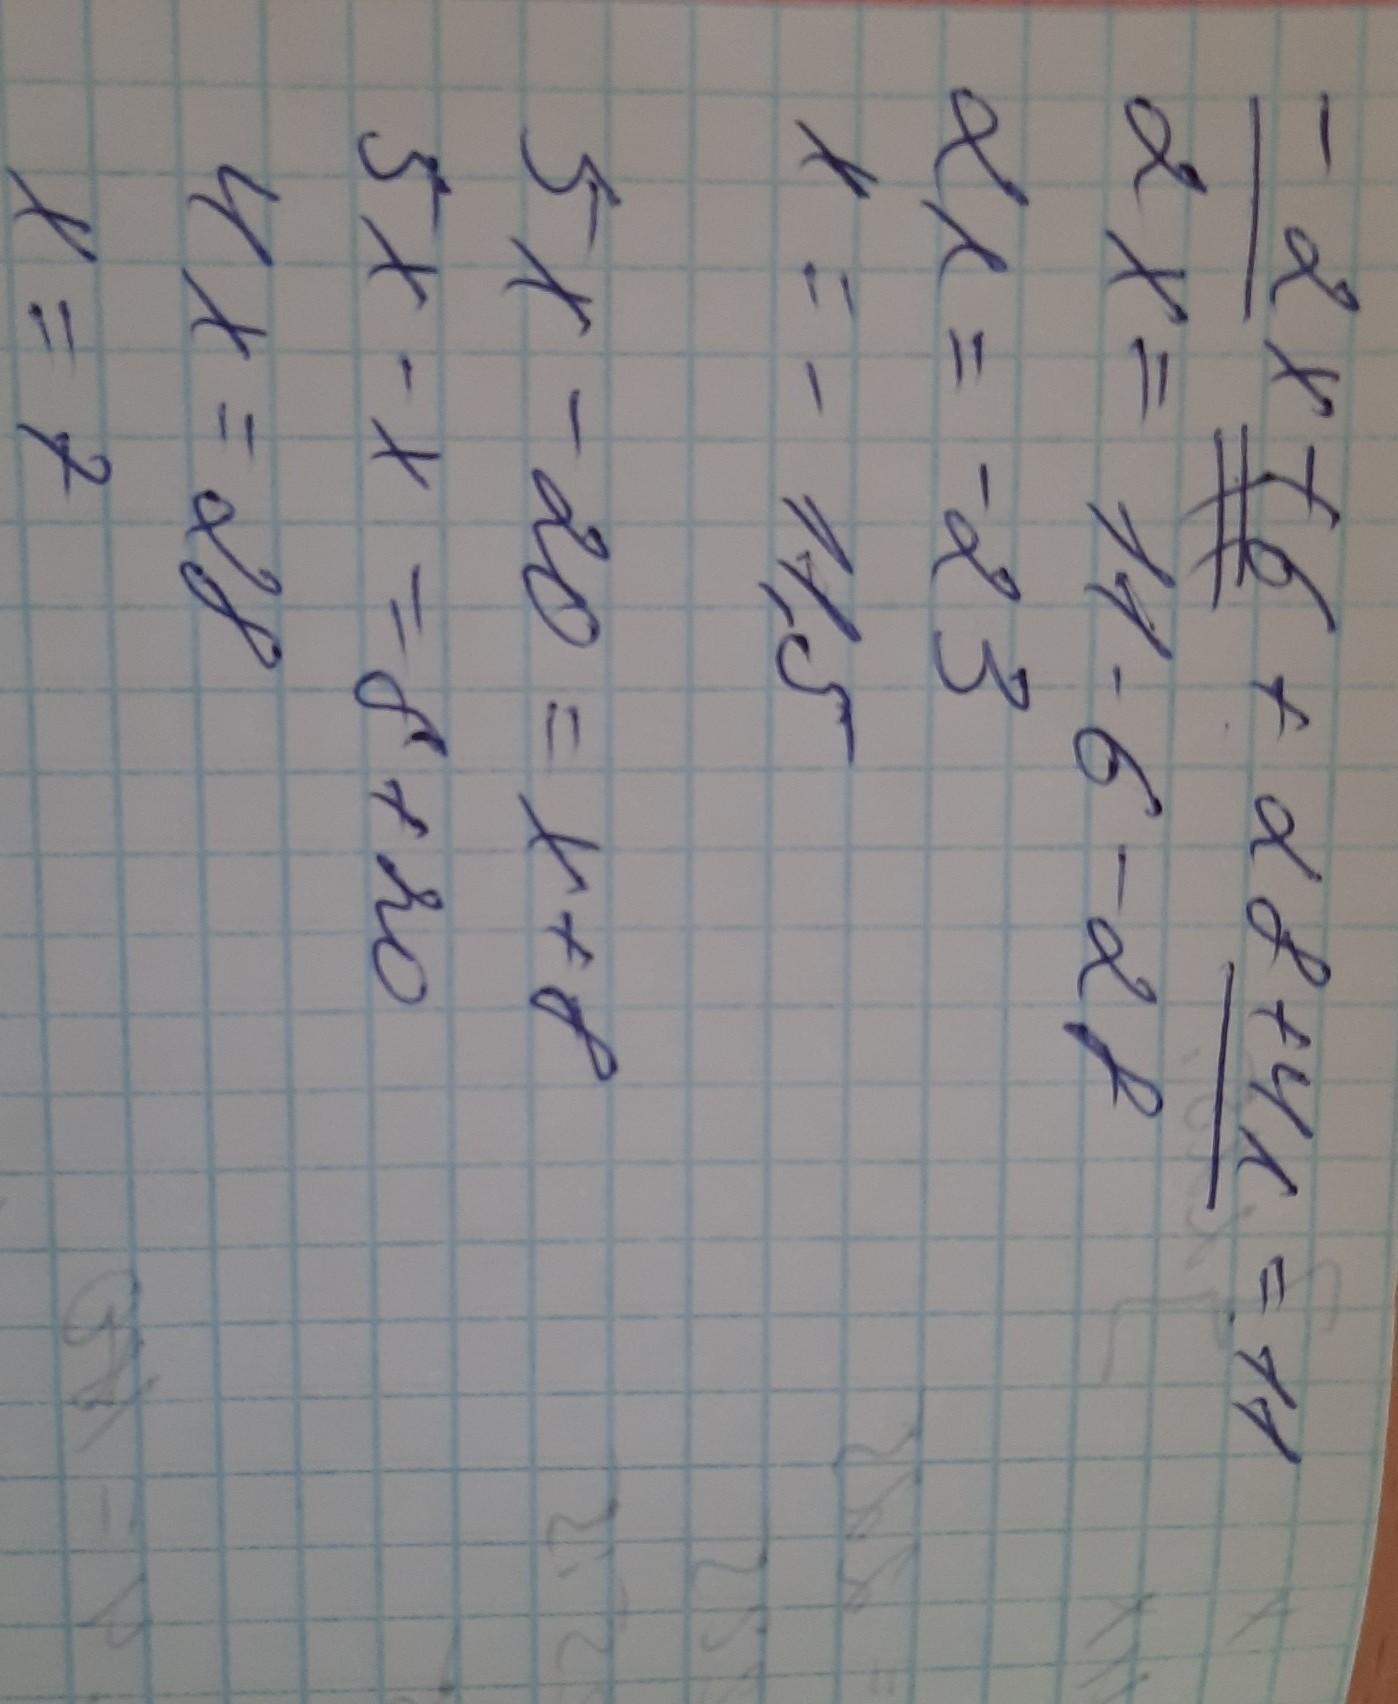 -2x+6+28+4x=11
2x=11-6-28
2x=-23
x=-11,5
5x-20=x+8
5x-x=8+20
4x=28
x=7